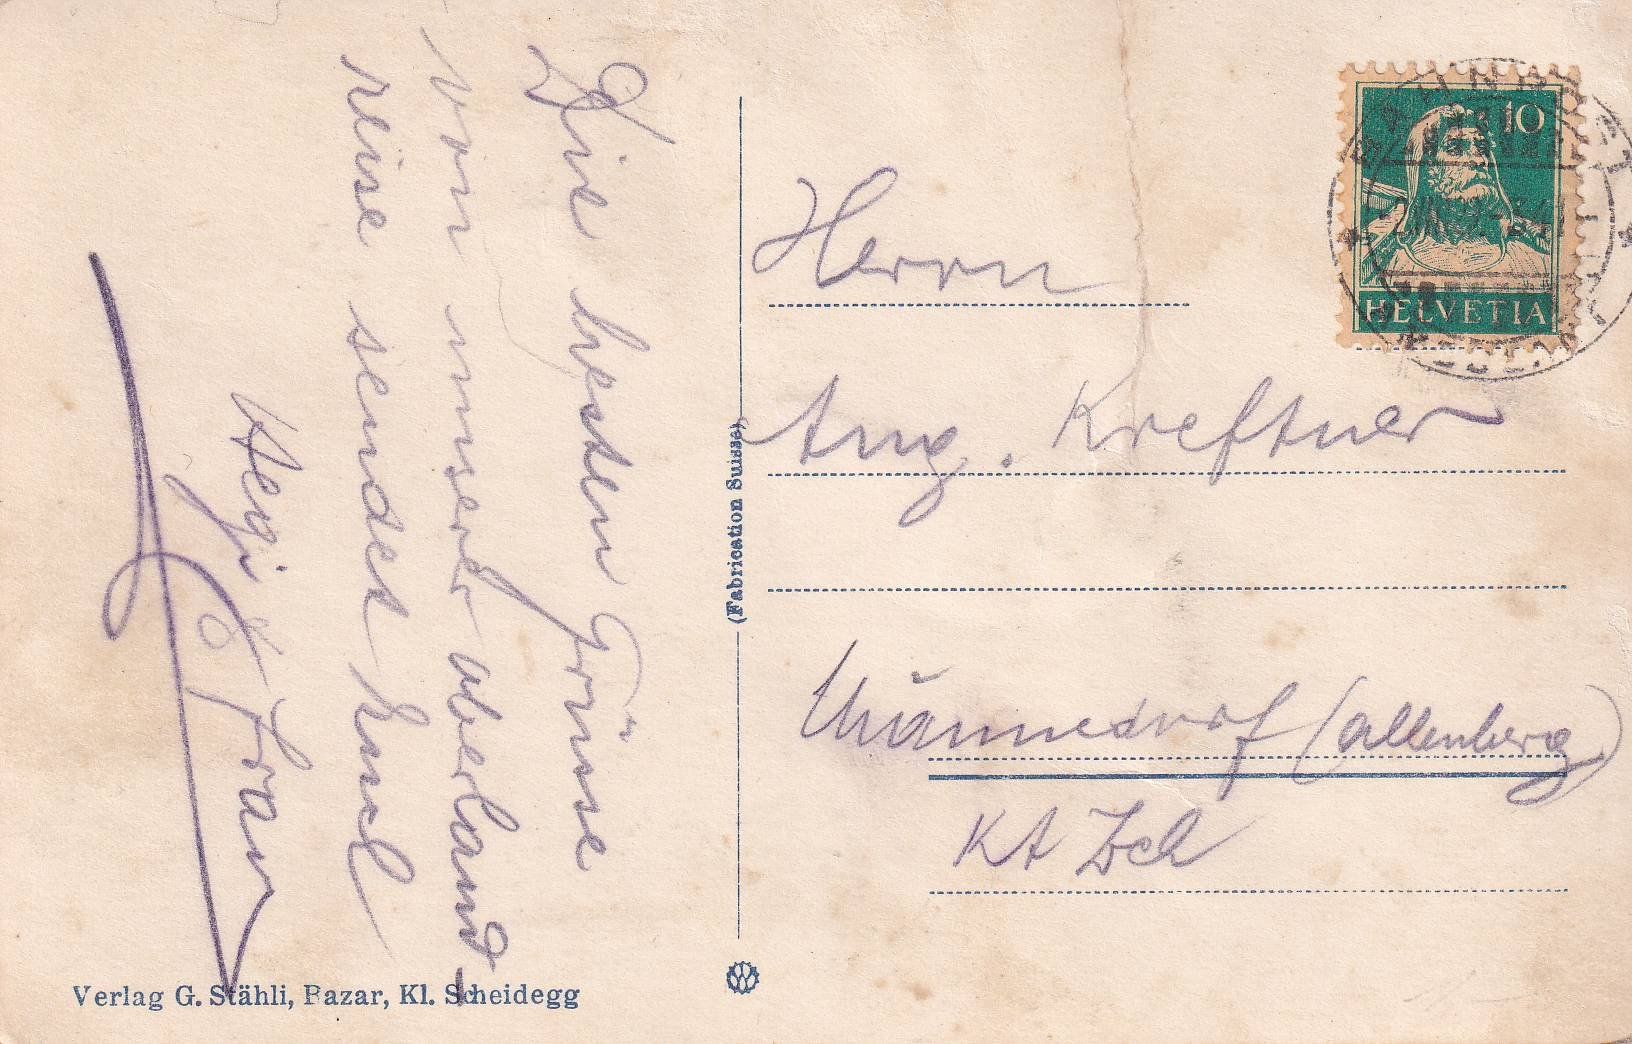 Die besten Grüsse
von unserer oberland-
reise sendet Euch
Hegi & Frau
(Fabrication Suisse)
10
HELVETIA
Herrn
Aug. Kreftner
Männedorf (allenberg)
Kt Zch
Verlag G. Stähli, Bazar, Kl. Scheidegg